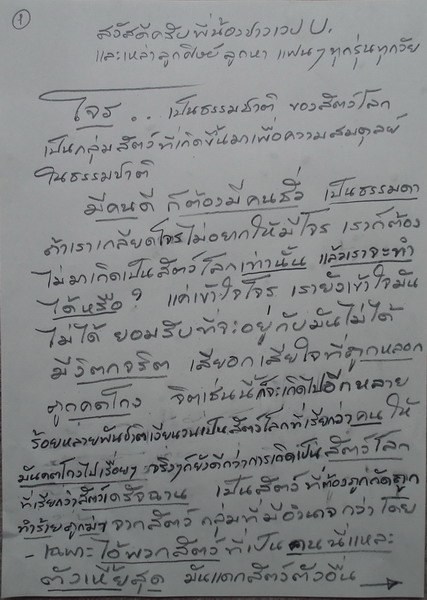 ①
สวัสดีครับพี่น้องชาวเวป บ.
และเหล่าลูกศิษย์ลูกหา แฟนๆทุกรุ่นทุกวัย
โจร .. เป็นธรรมชาติ ของสัตว์โลก
เป็นกลุ่มสัตว์ที่เกิดขึ้นมาเพื่อความสมดุลย์
ในธรรมชาติ
มีคนดี ก็ต้องมีคนชั่ว เป็นธรรมดา
ถ้าเราเกลียดโจรไม่อยากให้มีโจร เราก็ต้อง
ไม่มาเกิดเป็นสัตว์โลกเท่านั้น แล้วเราจะทำ
ได้หรือ? แค่เข้าใจโจร เรายังเข้าใจมัน
ไม่ได้ ยอมรับที่จะอยู่กับมันไม่ได้
มีวิตกจริต เสียอกเสียใจที่ถูกหลอก
ถูกคดโกง จิตเช่นนี้ก็จะเกิดไปอีกหลาย
ร้อยหลายพันชาติเวียนวนเป็นสัตว์โลกที่เรียกว่าคน ให้
มันคดโกงไปเรื่อยๆ จริงๆก็ยังดีกว่าการเกิดเป็นสัตว์โลก
ที่เรียกว่าสัตว์เดรัจฉาน เป็นสัตว์ที่ต้องถูกกัดถูก
ทำร้ายถูกฆ่า จากสัตว์ กลุ่มที่มีอำนาจกว่า โดย
- เฉพาะ ไอ้พวกสัตว์ที่เป็น คนนี่แหละ
ตัวเหี้ยสุด มันแดกสัตว์ตัวอื่น →